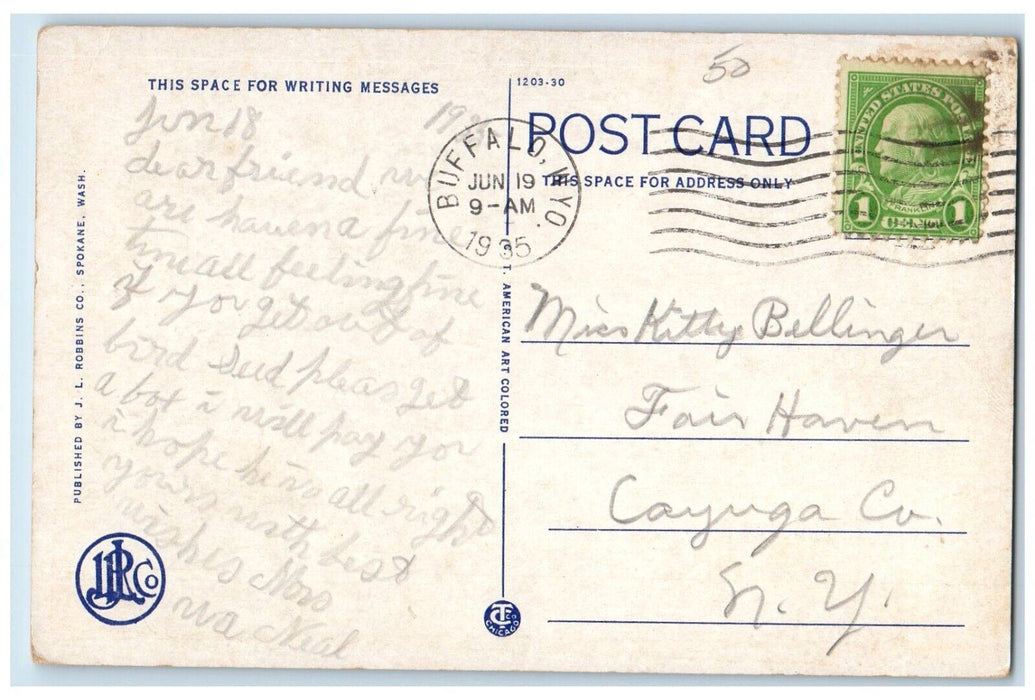 THIS SPACE FOR WRITING MESSAGES
Jun 18 19
dear friend we
are haven a fine
time all feeling fine
if you get out of
bird seed pleas get
a box i will pay you
i hope he is all right
yours with best
wishes Mrs
Neal
PUBLISHED BY J. L. ROBBINS CO., SPOKANE, WASH.
JLR Co
1203-30
POST CARD
THIS SPACE FOR ADDRESS ONLY
50
BUFFALO, WYO.
JUN 19
9-AM
1935
UNITED STATES POSTAGE
FRANKLIN
1 CENT 1
AMERICAN ART COLORED
CHICAGO
Miss Kitty Bellinger
Fair Haven
Cayuga Co.
N. Y.